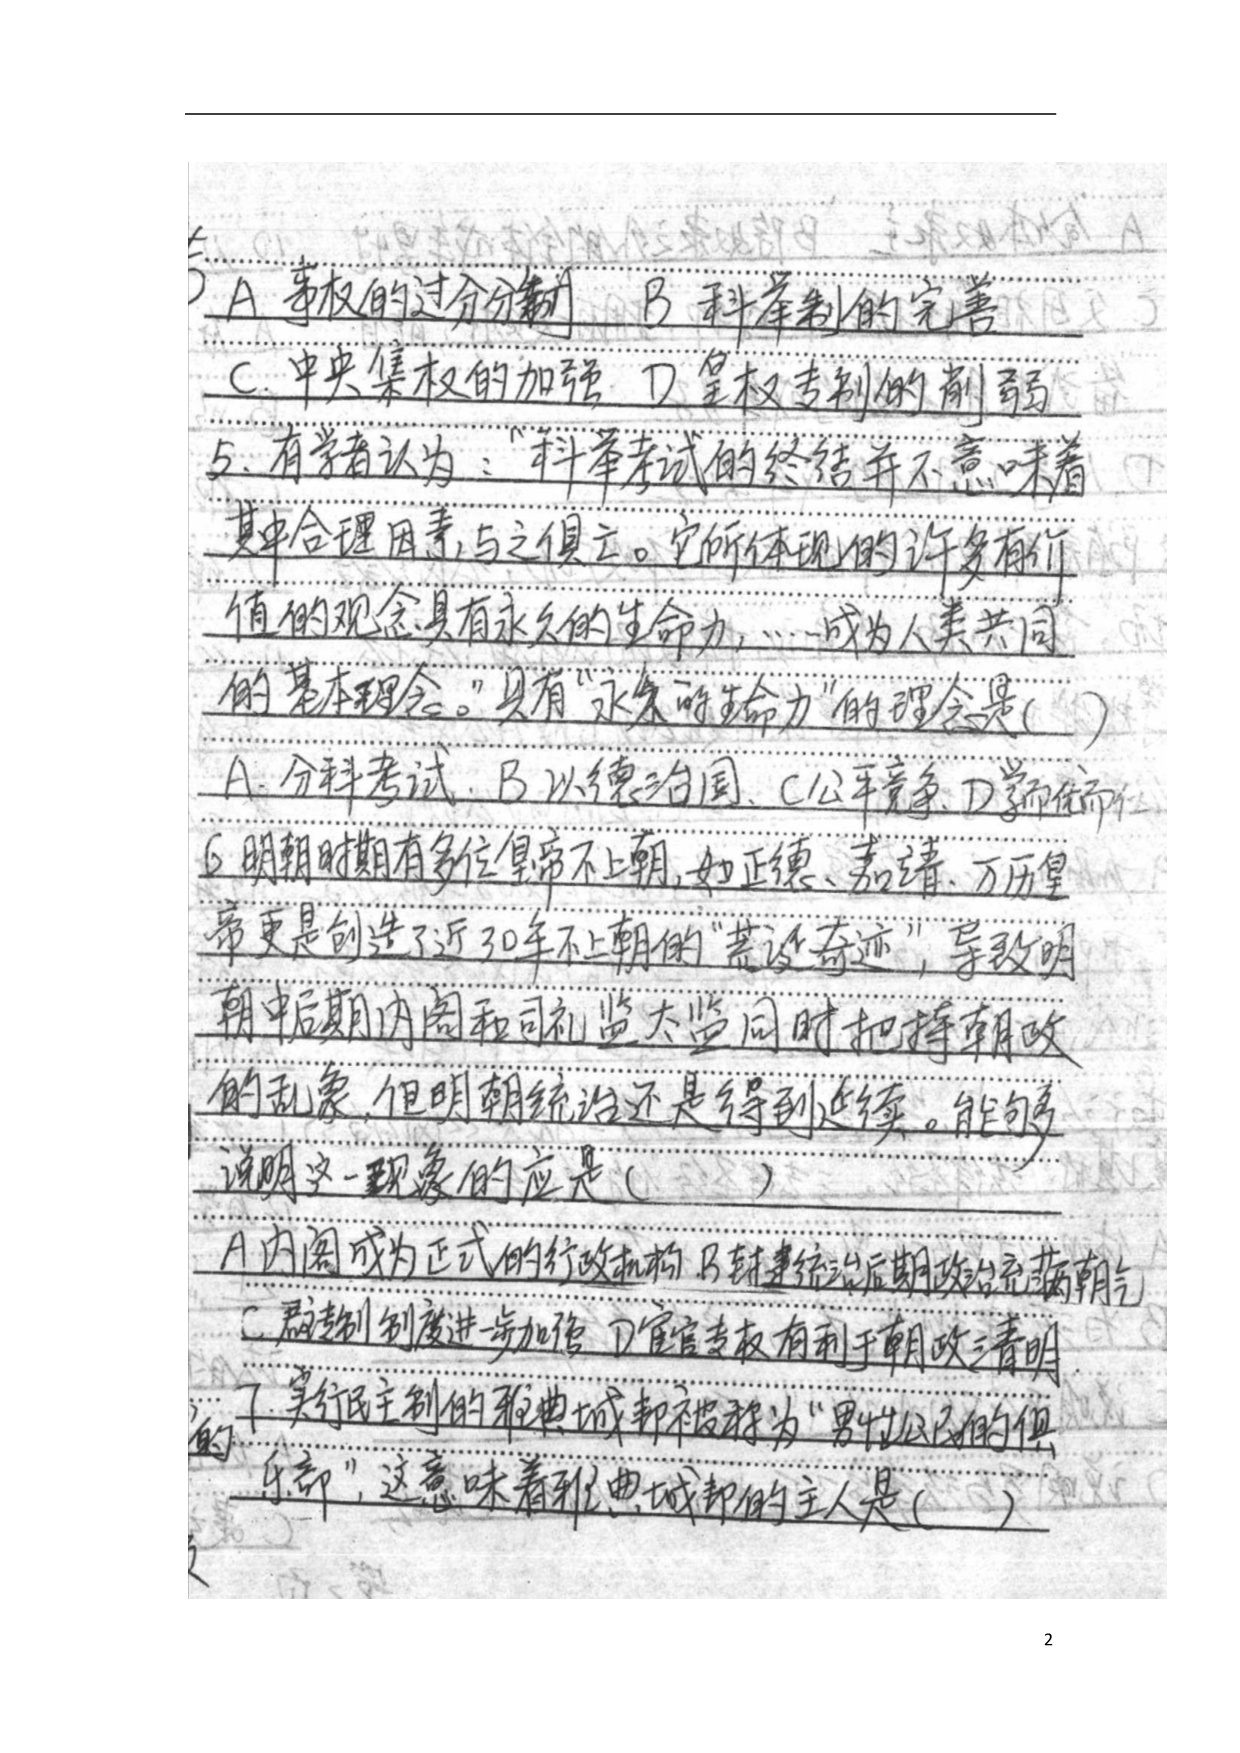 A 事权的过分分割 B 科举制的完善
C. 中央集权的加强 D 皇权专制的削弱
5. 有学者认为:“科举考试的终结并不意味着
其中合理因素,与之俱亡。它所体现的许多有价
值的观念具有永久的生命力,……成为人类共同
的基本理念。”具有“永久的生命力”的理念是( )
A. 分科考试. B 以德治国、C公平竞争、D学而优而仕
6 明朝时期有多位皇帝不上朝,如正德、嘉靖、万历皇
帝更是创造了近30年不上朝的“荒诞奇迹”,导致明
朝中后期内阁和司礼监太监同时把持朝政
的乱象,但明朝统治还是得到延续。能够
说明这一现象的应是( )
A 内阁成为正式的行政机构 B封建统治后期政治充满朝气
C 君主专制制度进一步加强 D 宦官专权有利于朝政清明
7. 实行民主制的雅典城邦被称为“男性公民的俱
的
乐部”,这意味着雅典城邦的主人是( )
2